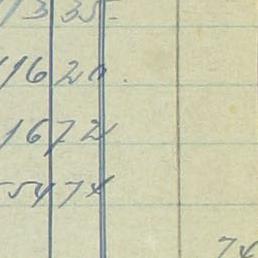 13 35
116 20
16 72
554 74
74